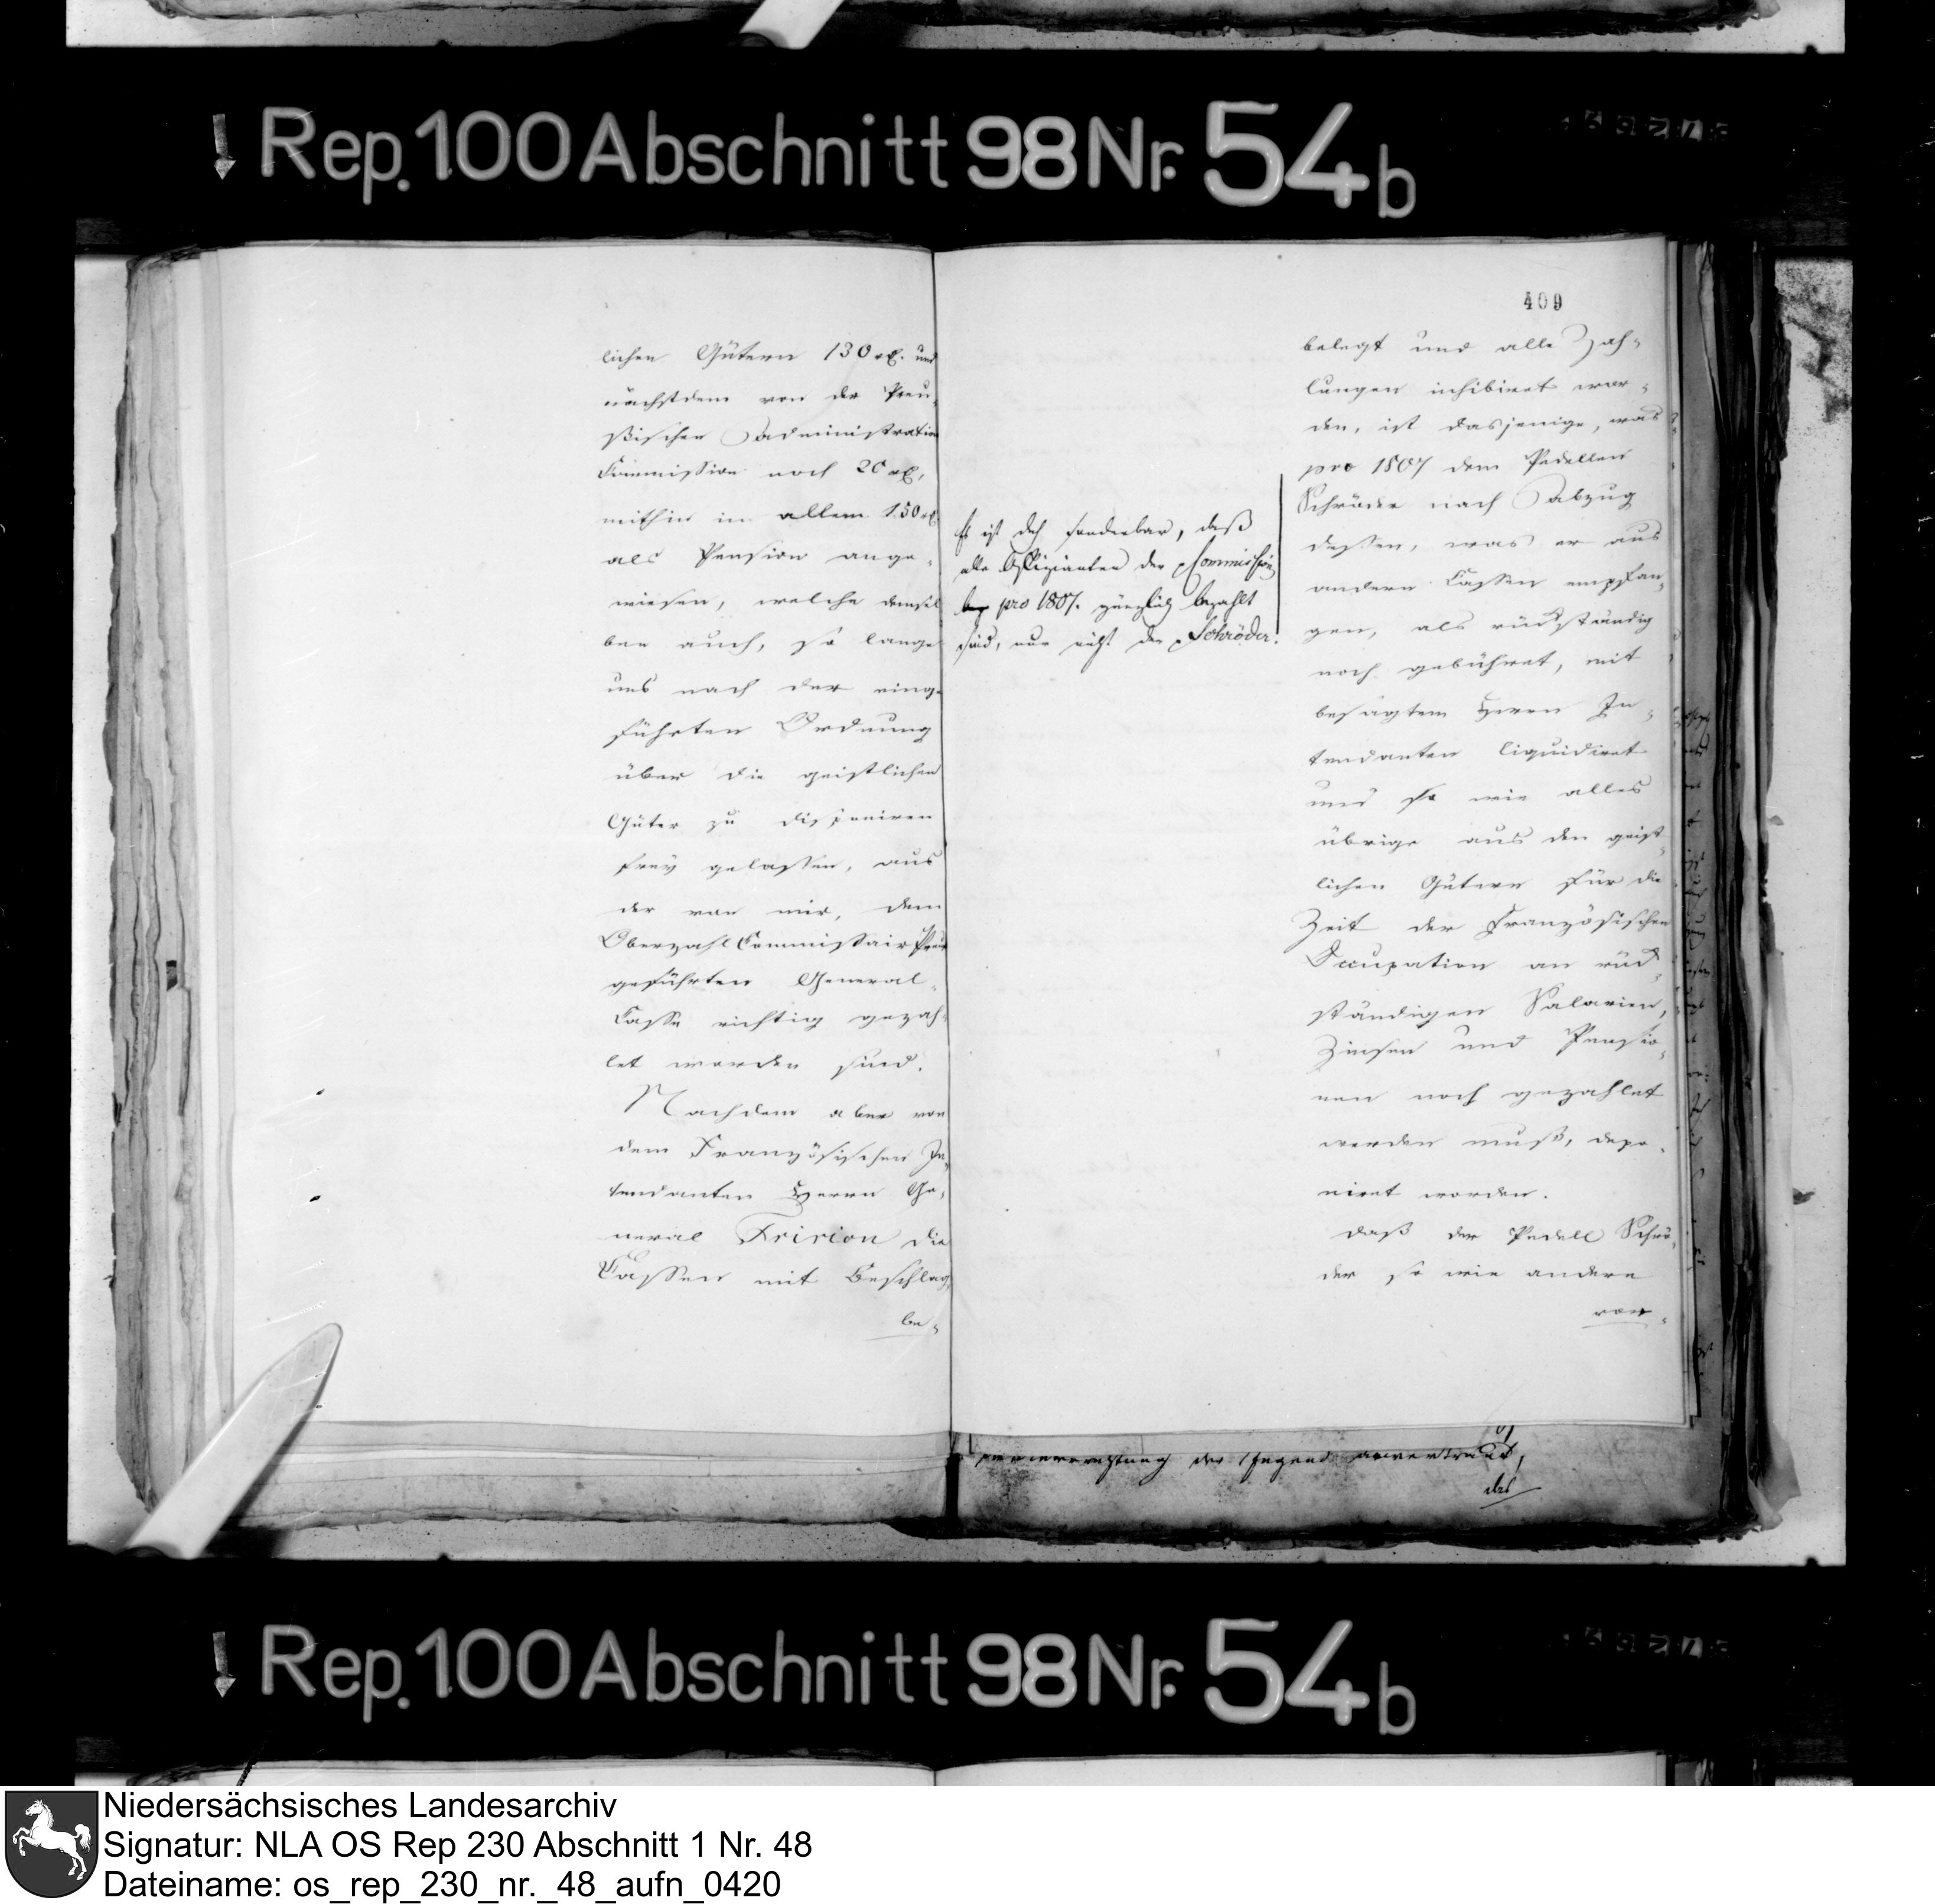 Rep. 100 Abschnitt 98 Nr. 54b
lichen Gütern 130 rℓ. und
nächstdem von der Preu-
ßischen Administration
Commission noch 20 rℓ,
mithin in allem 150 rℓ
als Pension ange-
wiesen, welche demsel
ben auch, so lange
uns nach der einge
führten Ordnung
über die geistlichen
Güter zu disponiren
frey gelassen, aus
der von mir, dem
Oberzahl Commissair
geführten General-
Casse richtig gezah-
let worden sind.
Nachdem aber von
dem Französischen In-
tendanten Herrn Ge-
neral Fririon die
Cassen mit Beschlag
be-
409
belegt und alle Zah-
lungen inhibiret wor-
den, ist dasjenige, was
pro 1807 dem Pedellen
Schröder nach Abzug
dessen, was er aus
andern Cassen empfan-
gen, als rückständig
noch gebühret, mit
besagtem Herrn In-
tendanten liquidiret
und so wie alles
übrige aus den geist-
lichen Gütern für die
Zeit der Französischen
Occupation an rück-
ständigen Salarien,
Zinsen und Pensio-
nen noch gezahlet
werden muß, depo-
niret worden.
Daß der Pedell Schrö-
der so wie andere
von-
Es ist doch sonderbar, daß
alle Offizianten der Commission
pro 1807. gänzlich bezahlt
sind, nur nicht der Schröder.
der Jugend anvertraut,
das
Rep. 100 Abschnitt 98 Nr. 54b
Niedersächsisches Landesarchiv
Signatur: NLA OS Rep 230 Abschnitt 1 Nr. 48
Dateiname: os_rep_230_nr._48_aufn_0420